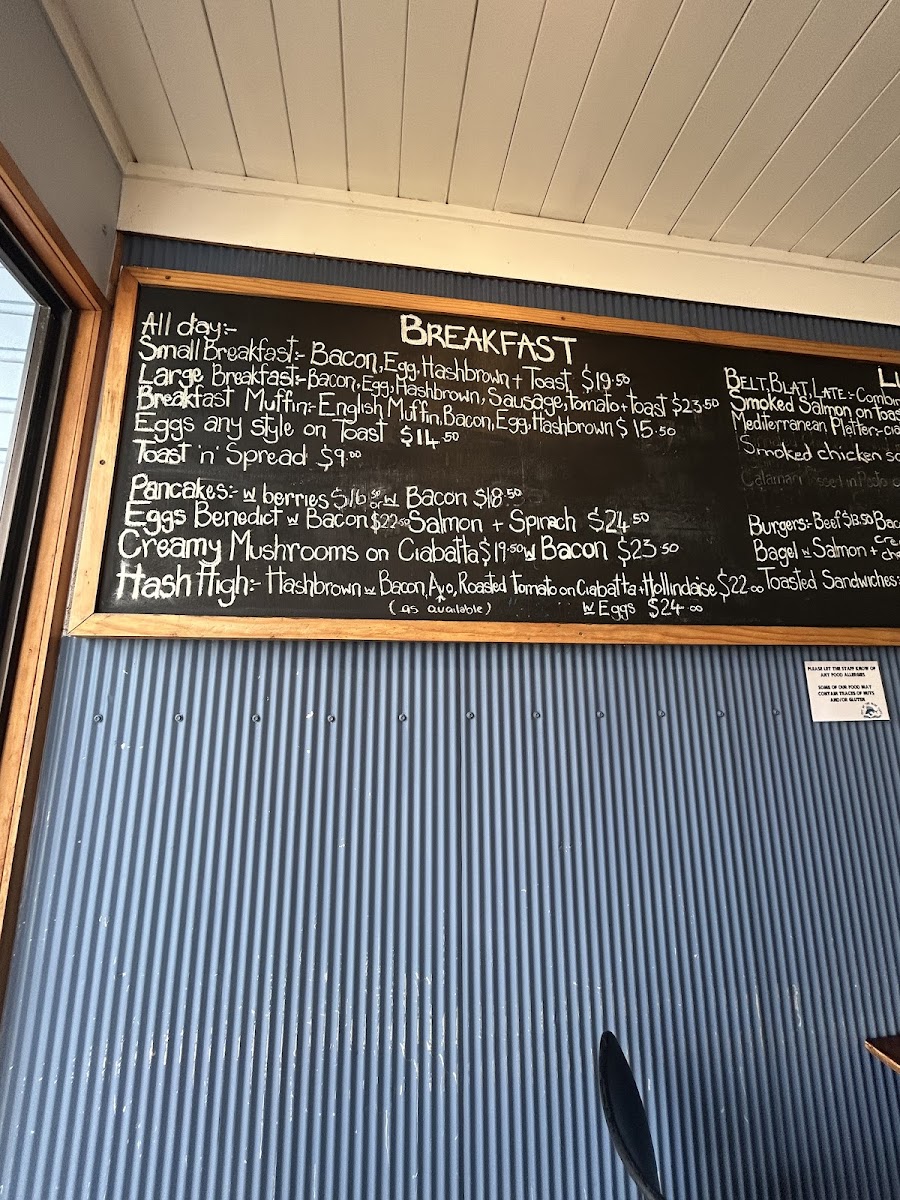 BREAKFAST
All day:-
Small Breakfast:- Bacon, Egg, Hashbrown + Toast $19.50
Large Breakfast:- Bacon, Egg, Hashbrown, Sausage, Tomato + Toast $23.50
Breakfast Muffin:- English Muffin, Bacon, Egg, Hashbrown $15.50
Eggs any style on Toast $14.50
Toast 'n' Spread $9.00
Pancakes:- w berries $16.50 or w Bacon $18.50
Eggs Benedict w Bacon $22.50 Salmon + Spinach $24.50
Creamy Mushrooms on Ciabatta $19.50 w Bacon $23.50
Hash High:- Hashbrown w Bacon, Avo, Roasted Tomato on Ciabatta + Hollindaise $22.00
(as available) w Eggs $24.00
BELT, BLAT, LATE:- Combin
Smoked Salmon on Toas
Mediterranean Platter:- cia
Smoked chicken sa
Calamari
Burgers:- Beef $13.50 Bac
Bagel w Salmon + cre
Toasted Sandwiches:
PLEASE LET THE STAFF KNOW OF
ANY FOOD ALLERGIES
SOME OF OUR FOOD MAY
CONTAIN TRACES OF NUTS
AND/OR GLUTEN